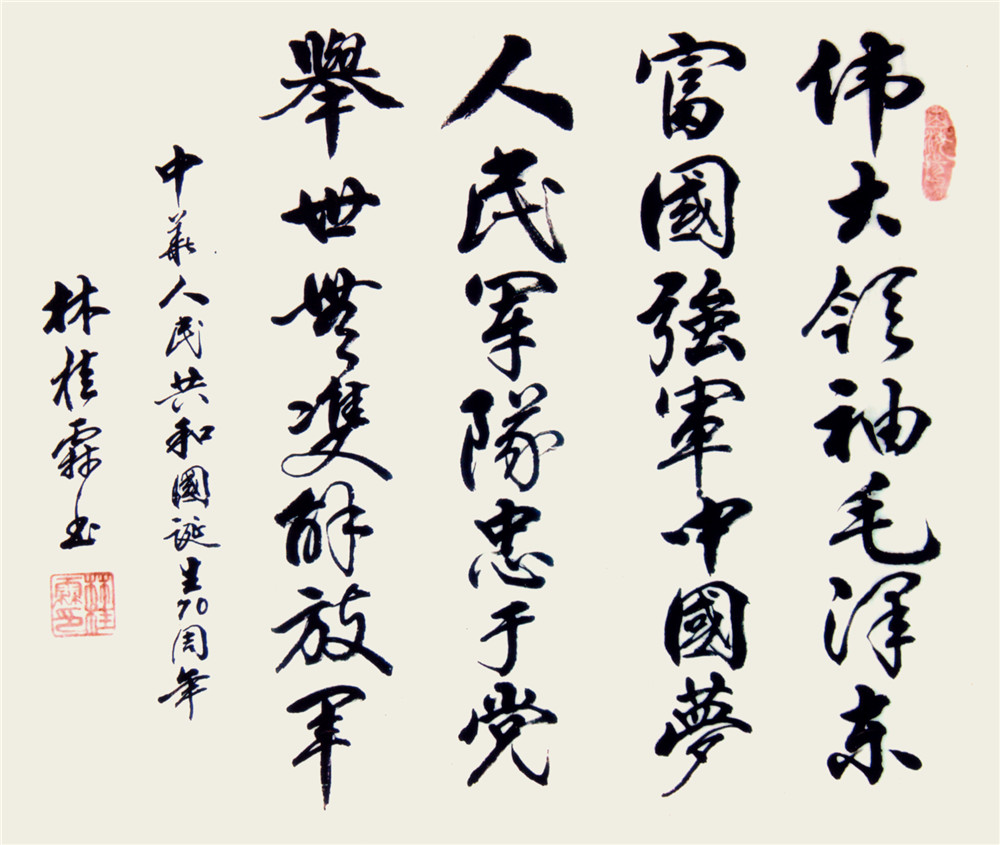 伟大领袖毛泽东
富國強軍中國夢
人民军隊忠于党
舉世無雙解放军
中華人民共和國誕生70周年
林桂霖书
林桂霖印